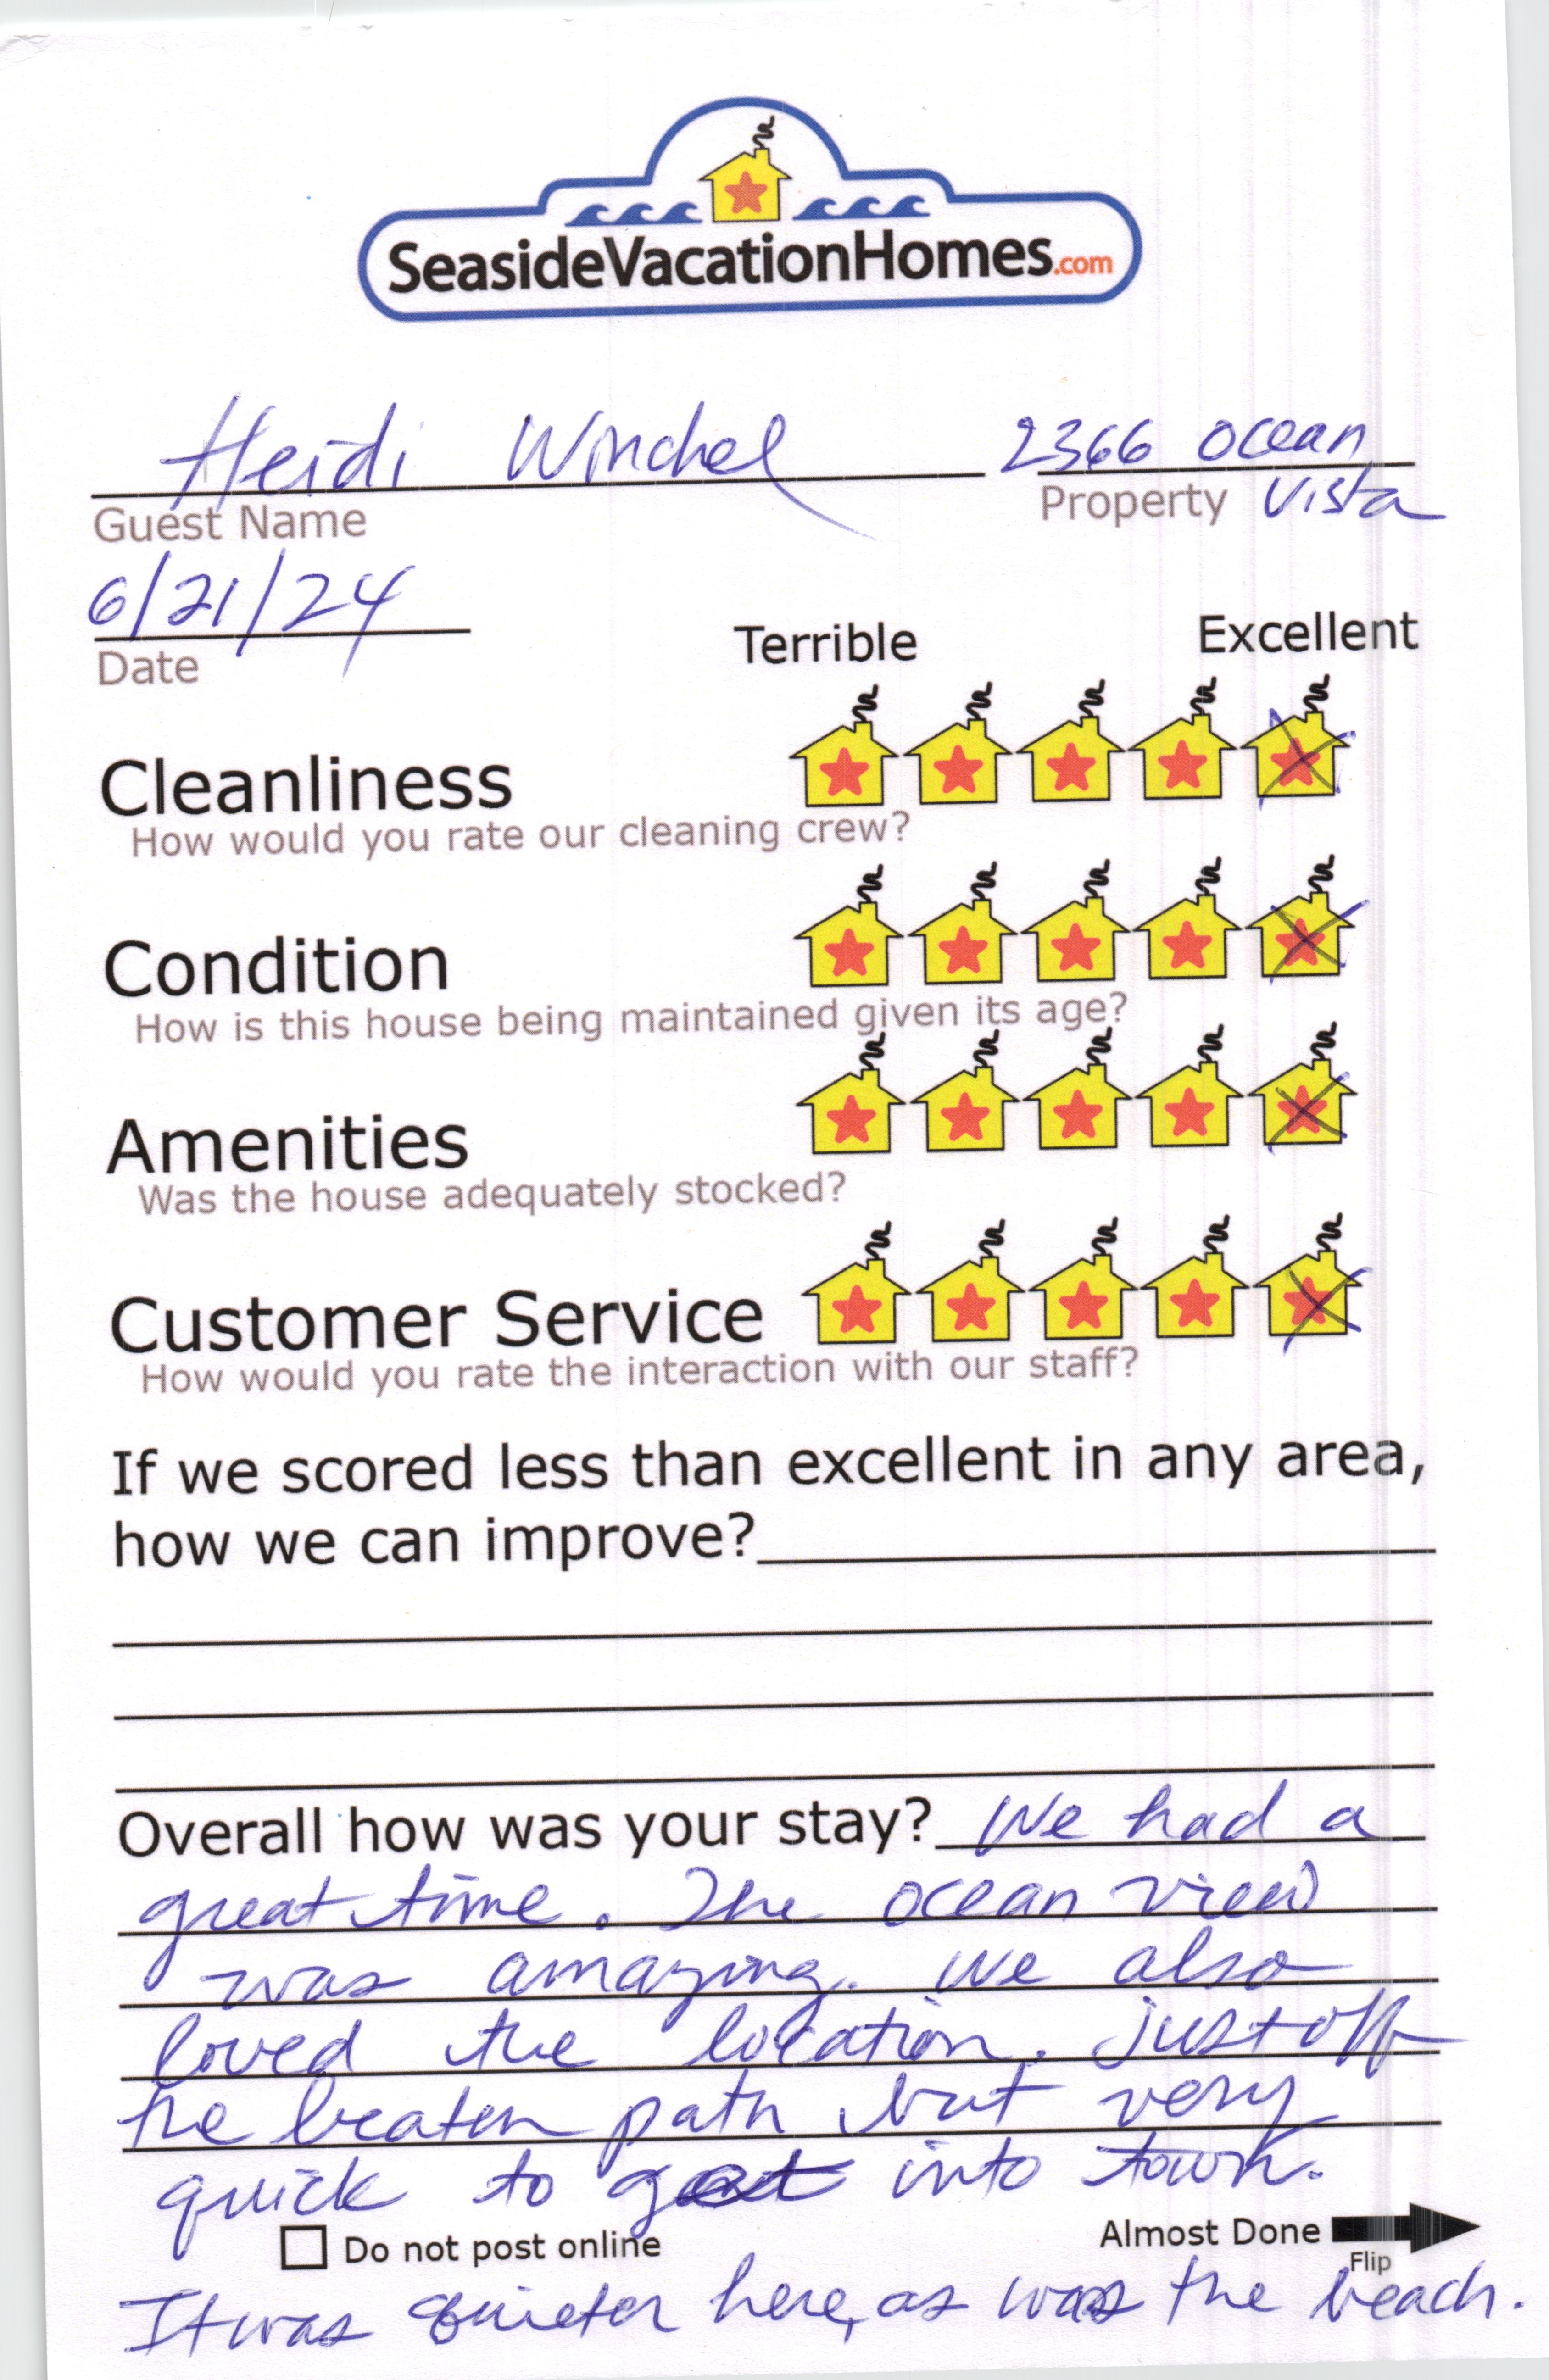 SeasideVacationHomes.com
Heidi Winchel
2366 Ocean
Vista
Guest Name
Property
6/21/24
Date
Terrible
Excellent
Cleanliness
How would you rate our cleaning crew?
Condition
How is this house being maintained given its age?
Amenities
Was the house adequately stocked?
Customer Service
How would you rate the interaction with our staff?
If we scored less than excellent in any area,
how we can improve?
Overall how was your stay? We had a
great time. The ocean view
was amazing. We also
loved the location. just off
the beaten path, but very
quick to get into town.
Do not post online
Almost Done
Flip
It was quieter here, as was the beach.